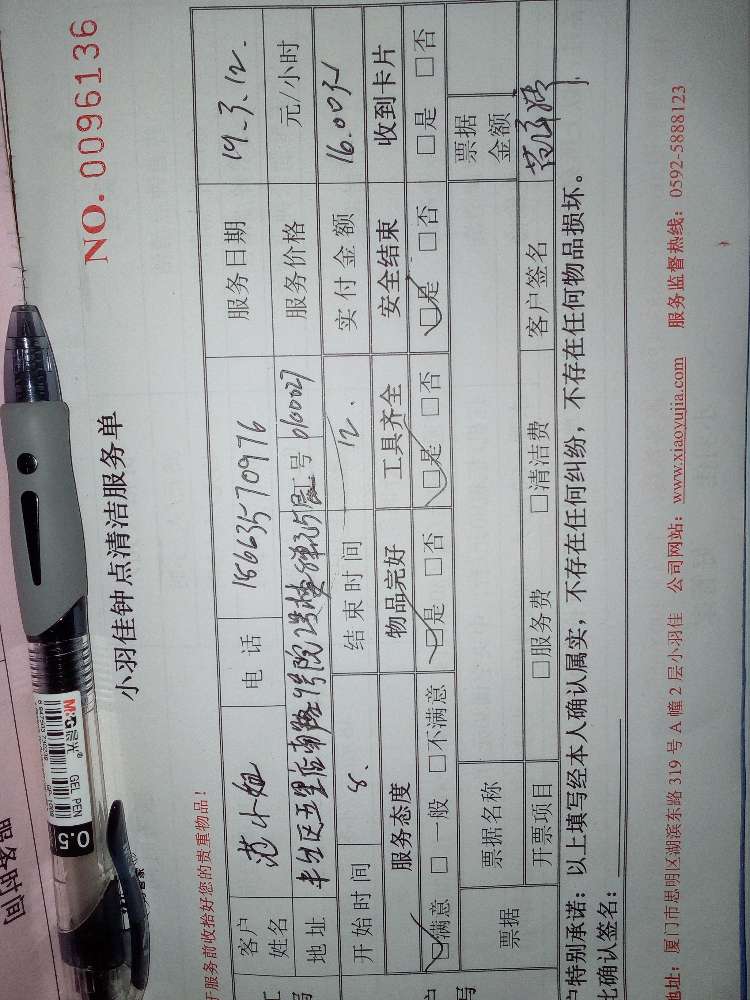 小羽佳钟点清洁服务单
NO. 0096136
于服务前收拾好您的贵重物品！
客户姓名 范小姐 电话 18663570976 服务日期 19.3.12.
地址 服务价格 元/小时
工号 010027
开始时间 8. 结束时间 12. 实付金额 16.00元
服务态度 物品完好 工具齐全 安全结束 收到卡片
□满意 □一般 □不满意 □是 □否 □是 □否 □是 □否 □是 □否
票据 票据名称 票据金额
开票项目 □服务费 □清洁费 客户签名
户特别承诺：以上填写经本人确认属实，不存在任何纠纷，不存在任何物品损坏。
比确认签名：
地址：厦门市思明区湖滨东路 319 号 A 幢 2 层小羽佳 公司网站：www.xiaoyujia.com 服务监督热线：0592-5888123
服务时间
M&G 晨光
GEL PEN
0.5